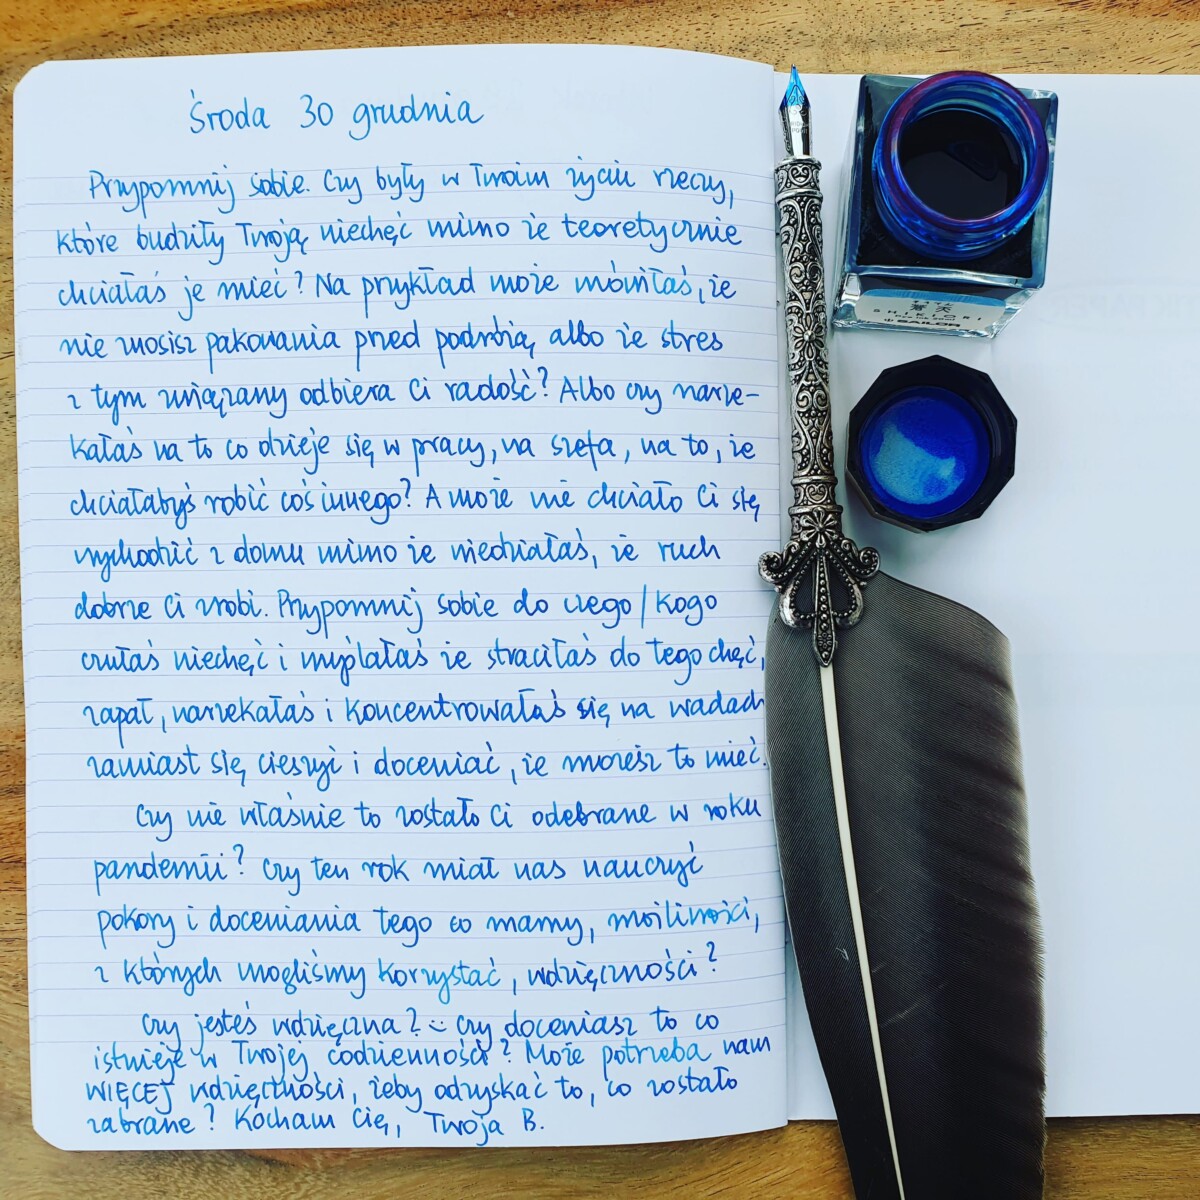 Środa 30 grudnia
Przypomnij sobie. Czy były w Twoim życiu rzeczy,
które budziły Twoją niechęć mimo że teoretycznie
chciałaś je mieć? Na przykład może mówiłaś, że
nie znosisz pakowania przed podróżą albo że stres
z tym związany odbiera Ci radość? Albo czy narze-
kałaś na to co dzieje się w pracy, na szefa, na to, że
chciałabyś robić coś innego? A może nie chciało Ci się
wychodzić z domu mimo że wiedziałaś, że ruch
dobrze Ci zrobi. Przypomnij sobie do czego/kogo
czułaś niechęć i myślałaś że straciłaś do tego chęć,
zapał, narzekałaś i koncentrowałaś się na wadach
zamiast się cieszyć i doceniać, że możesz to mieć.
Czy nie właśnie to zostało Ci odebrane w roku
pandemii? Czy ten rok miał nas nauczyć
pokory i doceniania tego co mamy, możliwości,
z których mogliśmy korzystać, wdzięczności?
Czy jesteś wdzięczna? Czy doceniasz to co
istnieje w Twojej codzienności? Może potrzeba nam
WIĘCEJ wdzięczności, żeby odzyskać to, co zostało
zabrane? Kocham Cię, Twoja B.
SHIKIORI
SAILOR